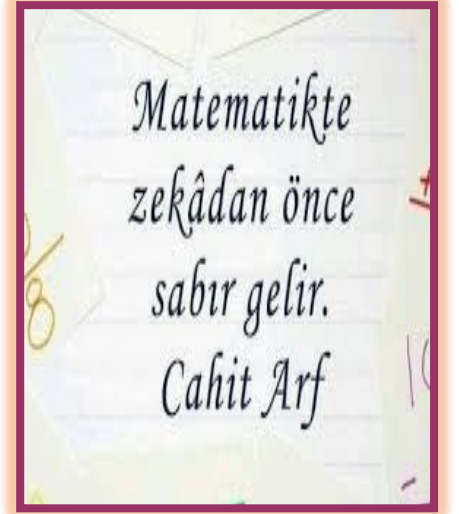 Matematikte
zekâdan önce
sabır gelir.
Cahit Arf